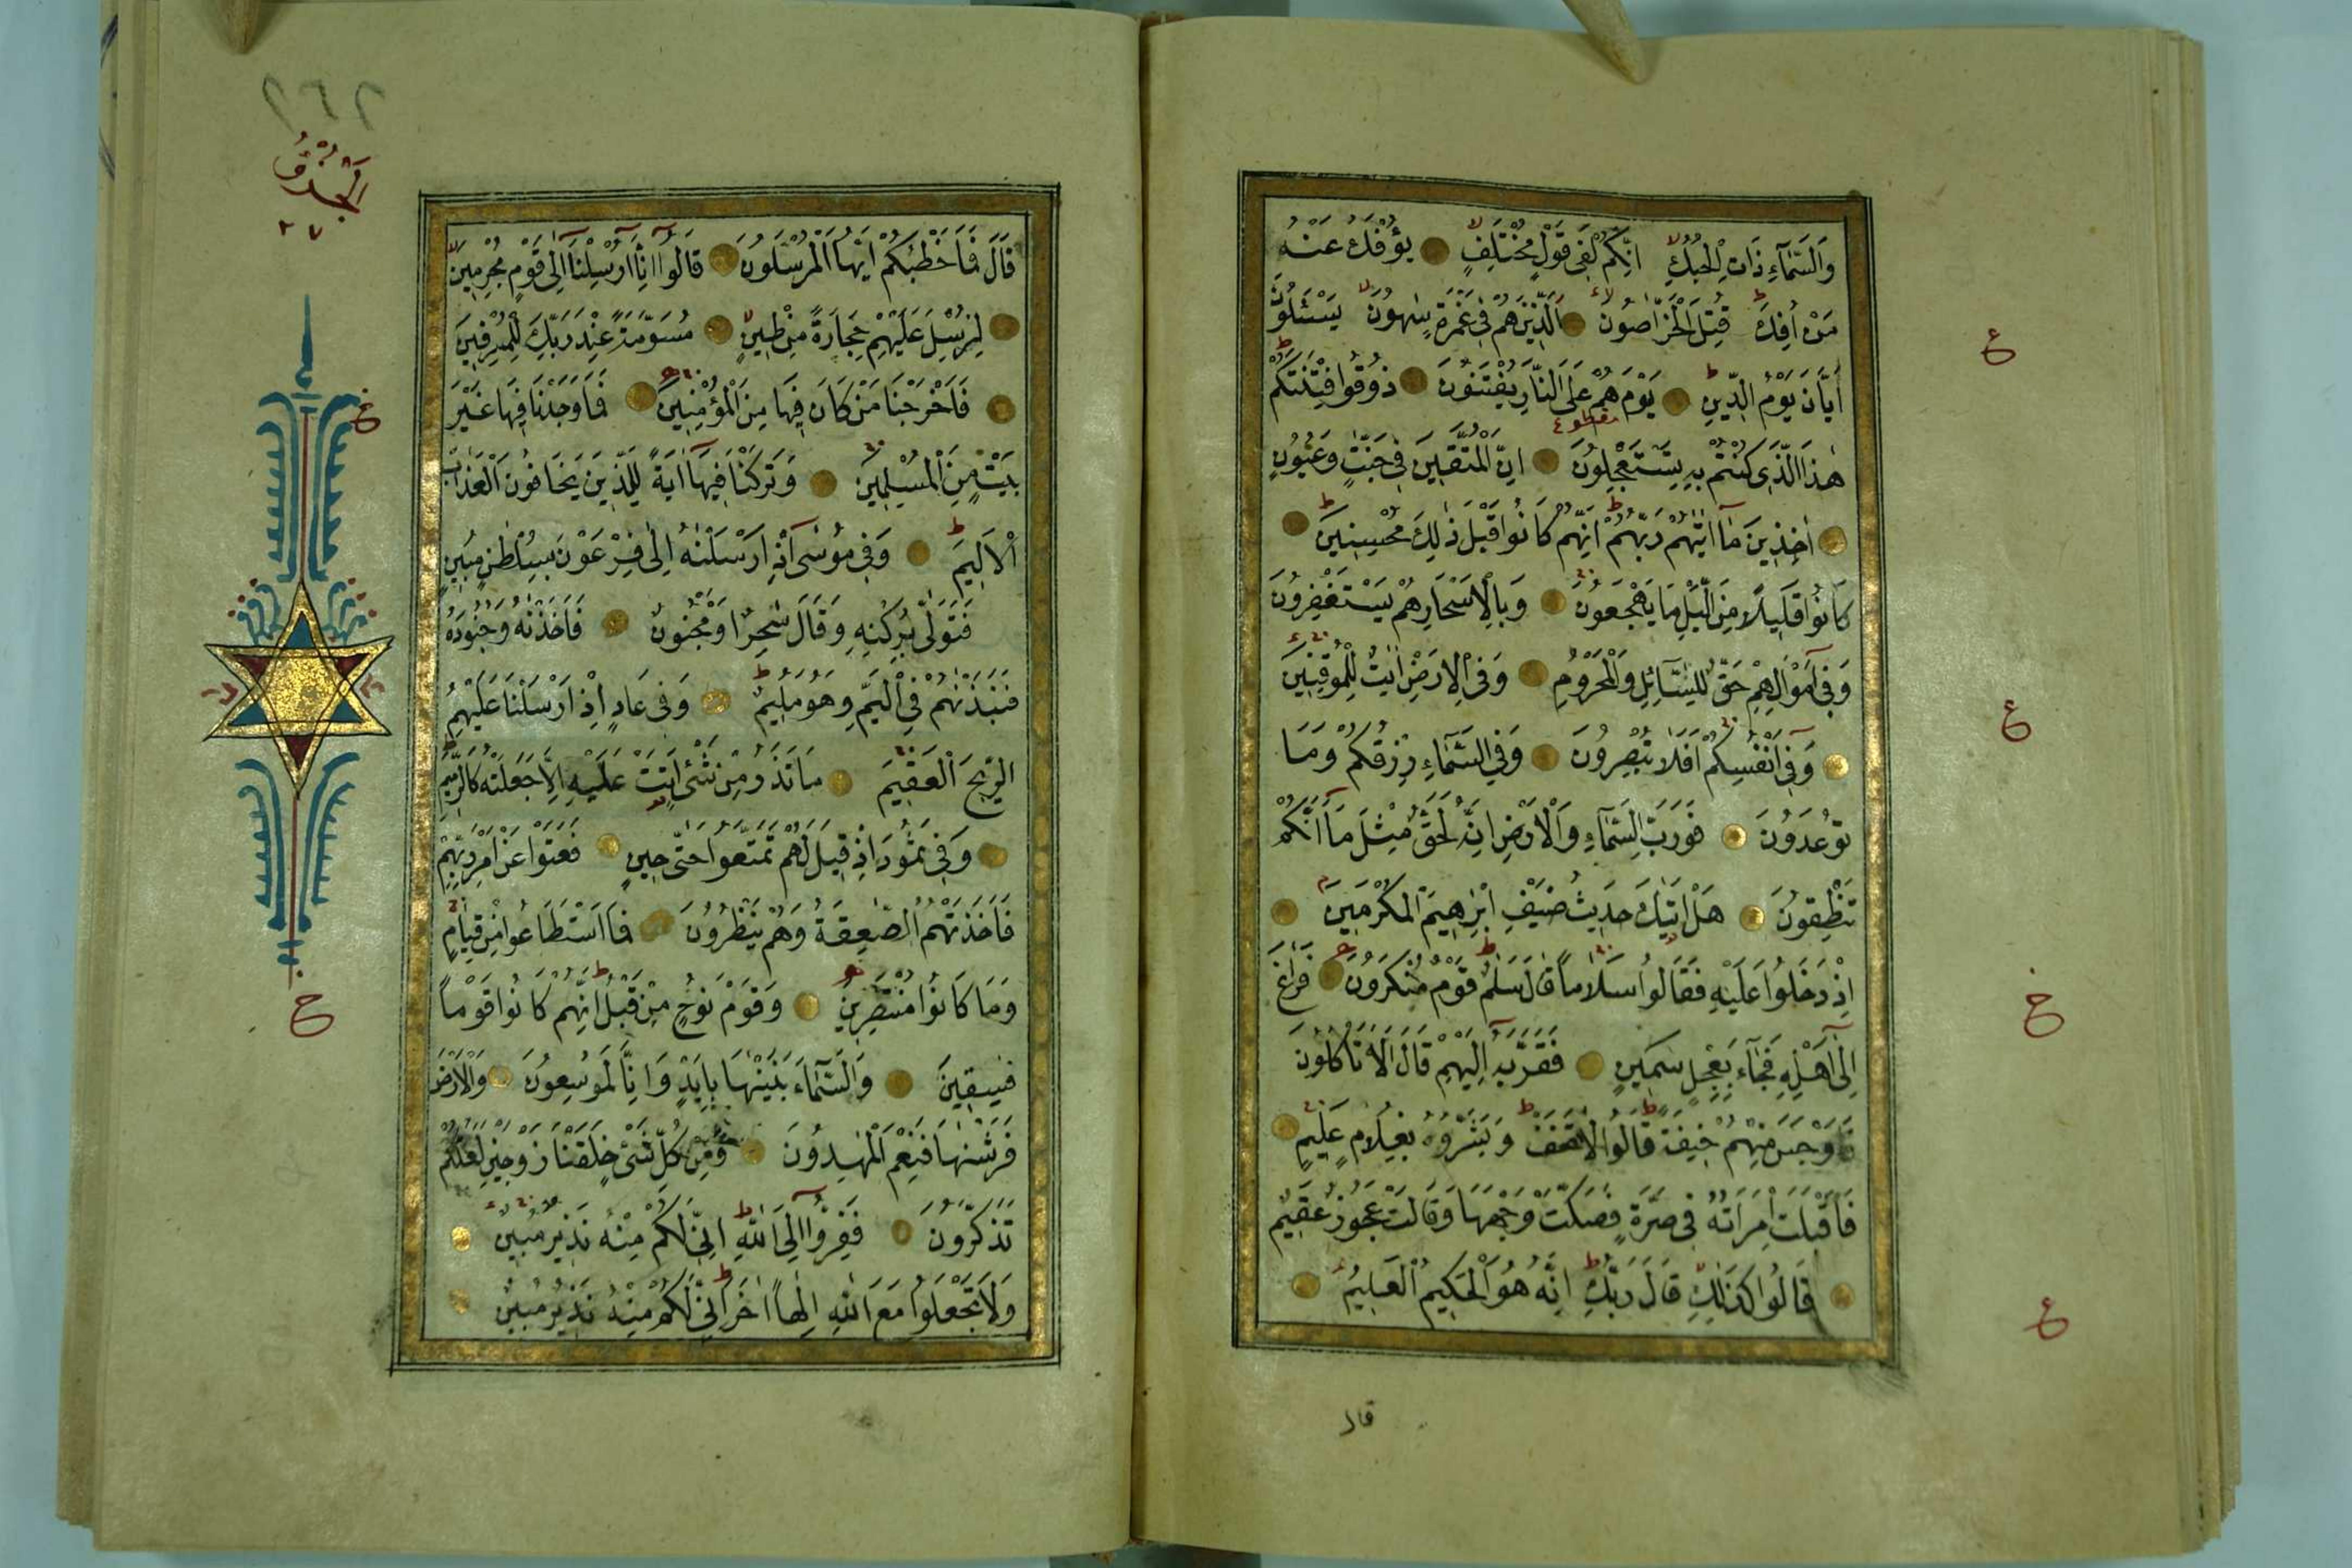 وَالسَّمَآءِ ذَاتِ الْحُبُكِ اِنَّكُمْ لَفِى قَوْلٍ مُخْتَلِفٍ يُؤْفَكُ عَنْهُ
مَنْ اُفِكَ قُتِلَ الْخَرَّاصُونَ اَلَّذِينَ هُمْ فِى غَمْرَةٍ سَاهُونَ يَسْئَلُونَ
اَيَّانَ يَوْمُ الدِّينِ يَوْمَ هُمْ عَلَى النَّارِ يُفْتَنُونَ ذُوقُوا فِتْنَتَكُمْ
هٰذَا الَّذِى كُنْتُمْ بِهِ تَسْتَعْجِلُونَ اِنَّ الْمُتَّقِينَ فِى جَنَّتٍ وَعُيُونٍ
اٰخِذِينَ مَٓا اٰتٰيهُمْ رَبُّهُمْ اِنَّهُمْ كَانُوا قَبْلَ ذٰلِكَ مُحْسِنِينَ
كَانُوا قَلِيلًا مِنَ الَّيْلِ مَا يَهْجَعُونَ وَبِالْاَسْحَارِ هُمْ يَسْتَغْفِرُونَ
وَفِٓى اَمْوَالِهِمْ حَقٌّ لِلسَّٓائِلِ وَالْمَحْرُومِ وَفِى الْاَرْضِ اٰيٰتٌ لِلْمُوقِنِينَ
وَفِٓى اَنْفُسِكُمْ اَفَلَا تُبْصِرُونَ وَفِى السَّمَٓاءِ رِزْقُكُمْ وَمَا
تُوعَدُونَ فَوَرَبِّ السَّمَٓاءِ وَالْاَرْضِ اِنَّهُ لَحَقٌّ مِثْلَ مَٓا اَنَّكُمْ
تَنْطِقُونَ هَلْ اَتٰيكَ حَدِيثُ ضَيْفِ اِبْرٰهِيمَ الْمُكْرَمِينَ
اِذْ دَخَلُوا عَلَيْهِ فَقَالُوا سَلَامًا قَالَ سَلٰمٌ قَوْمٌ مُنْكَرُونَ فَرَاغَ
اِلٰٓى اَهْلِهِ فَجَٓاءَ بِعِجْلٍ سَمِينٍ فَقَرَّبَهُ اِلَيْهِمْ قَالَ اَلَا تَاْكُلُونَ
فَاَوْجَسَ مِنْهُمْ خِيفَةً قَالُوا لَا تَخَفْ وَبَشَّرُوهُ بِغُلَامٍ عَلِيمٍ
فَاَقْبَلَتِ امْرَاَتُهُ فِى صَرَّةٍ فَصَكَّتْ وَجْهَهَا وَقَالَتْ عَجُوزٌ عَقِيمٌ
قَالُوا كَذٰلِكِ قَالَ رَبُّكِ اِنَّهُ هُوَ الْحَكِيمُ الْعَلِيمُ
قال
٢٦٢
اَلْجُزْؤُ
٢٧
قَالَ فَمَا خَطْبُكُمْ اَيُّهَا الْمُرْسَلُونَ قَالُٓوا اِنَّٓا اُرْسِلْنَٓا اِلٰى قَوْمٍ مُجْرِمِينَ
لِنُرْسِلَ عَلَيْهِمْ حِجَارَةً مِنْ طِينٍ مُسَوَّمَةً عِنْدَ رَبِّكَ لِلْمُسْرِفِينَ
فَاَخْرَجْنَا مَنْ كَانَ فِيهَا مِنَ الْمُؤْمِنِينَ فَمَا وَجَدْنَا فِيهَا غَيْرَ
بَيْتٍ مِنَ الْمُسْلِمِينَ وَتَرَكْنَا فِيهَٓا اٰيَةً لِلَّذِينَ يَخَافُونَ الْعَذَابَ
الْاَلِيمَ وَفِى مُوسٰٓى اِذْ اَرْسَلْنٰهُ اِلٰى فِرْعَوْنَ بِسُلْطٰنٍ مُبِينٍ
فَتَوَلّٰى بِرُكْنِهِ وَقَالَ سٰحِرٌ اَوْ مَجْنُونٌ فَاَخَذْنٰهُ وَجُنُودَهُ
فَنَبَذْنٰهُمْ فِى الْيَمِّ وَهُوَ مُلِيمٌ وَفِى عَادٍ اِذْ اَرْسَلْنَا عَلَيْهِمُ
الرِّيحَ الْعَقِيمَ مَا تَذَرُ مِنْ شَىْءٍ اَتَتْ عَلَيْهِ اِلَّا جَعَلَتْهُ كَالرَّمِيمِ
وَفِى ثَمُودَ اِذْ قِيلَ لَهُمْ تَمَتَّعُوا حَتّٰى حِينٍ فَعَتَوْا عَنْ اَمْرِ رَبِّهِمْ
فَاَخَذَتْهُمُ الصّٰعِقَةُ وَهُمْ يَنْظُرُونَ فَمَا اسْتَطَاعُوا مِنْ قِيَامٍ
وَمَا كَانُوا مُنْتَصِرِينَ وَقَوْمَ نُوحٍ مِنْ قَبْلُ اِنَّهُمْ كَانُوا قَوْمًا
فٰسِقِينَ وَالسَّمَٓاءَ بَنَيْنٰهَا بِاَيْدٍ وَاِنَّا لَمُوسِعُونَ وَالْاَرْضَ
فَرَشْنٰهَا فَنِعْمَ الْمٰهِدُونَ وَمِنْ كُلِّ شَىْءٍ خَلَقْنَا زَوْجَيْنِ لَعَلَّكُمْ
تَذَكَّرُونَ فَفِرُّٓوا اِلَى اللّٰهِ اِنِّى لَكُمْ مِنْهُ نَذِيرٌ مُبِينٌ
وَلَا تَجْعَلُوا مَعَ اللّٰهِ اِلٰهًا اٰخَرَ اِنِّى لَكُمْ مِنْهُ نَذِيرٌ مُبِينٌ